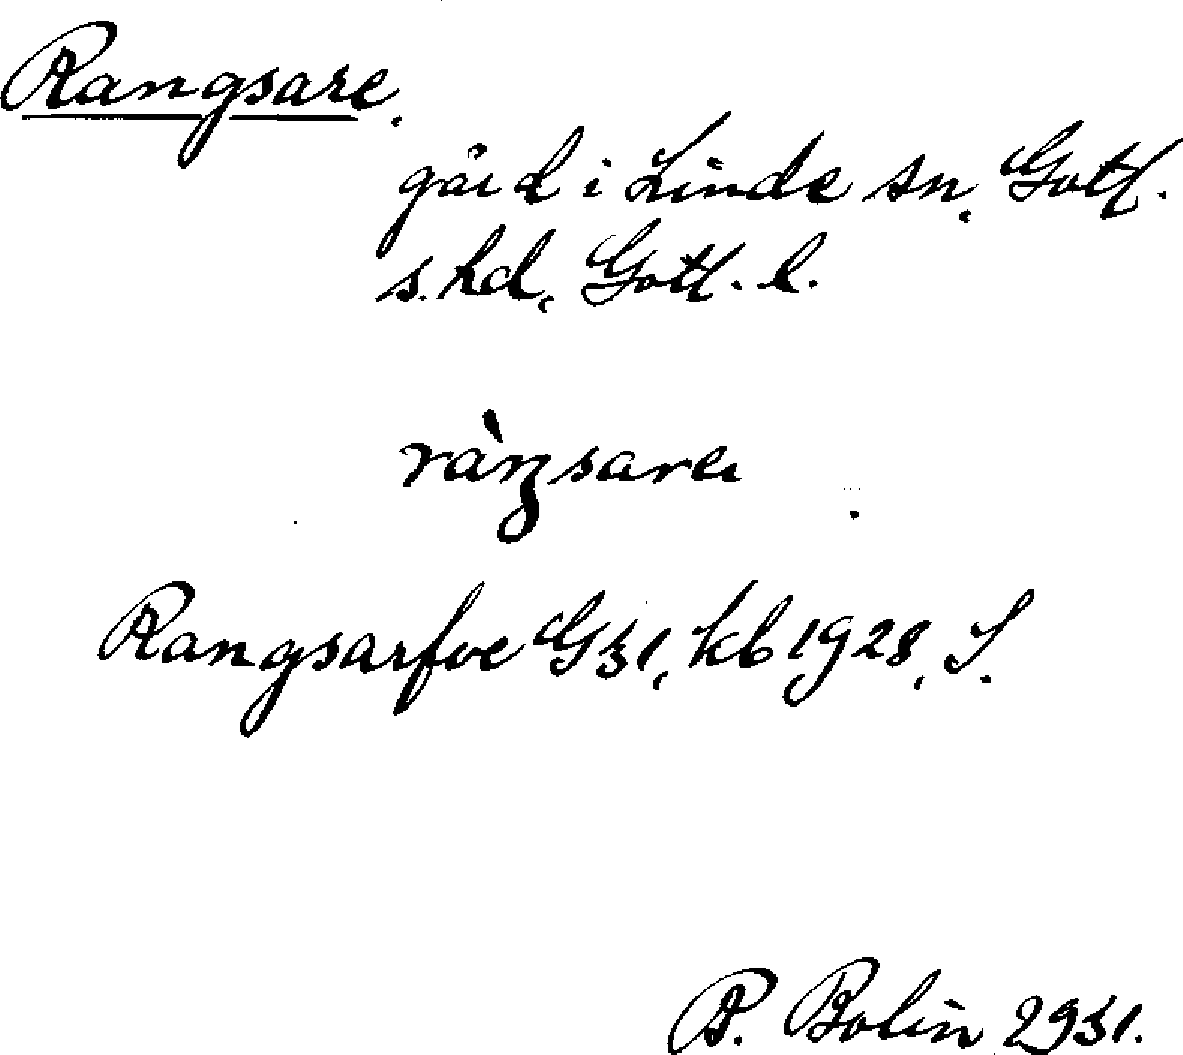 Rangsare.
gård i Linde sn, Gotl.
s. hd, Gotl. l.
ràŋsare
Rangsarfve G31, kb 1928, S.
P. Bolin 2931.